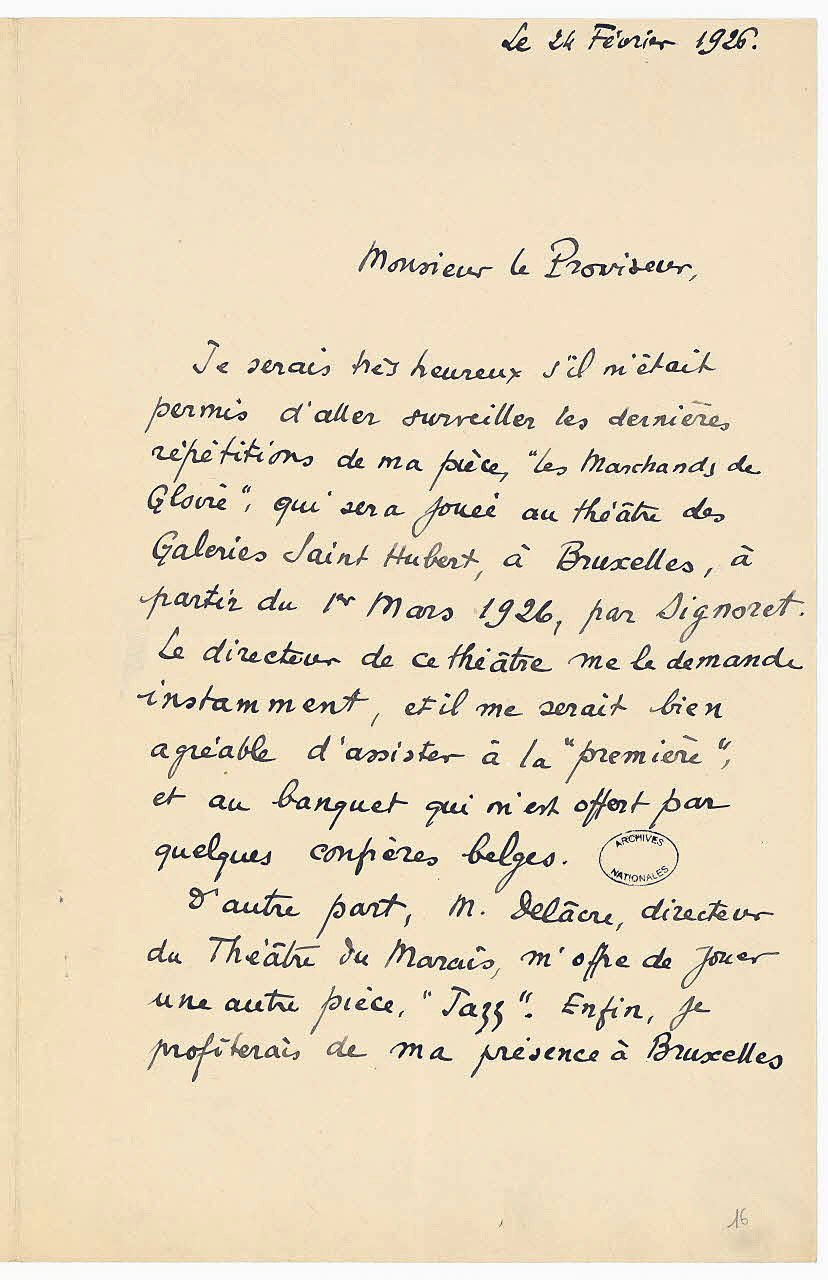 Le 24 Février 1926.
Monsieur le Proviseur,
Je serais très heureux s'il m'était
permis d'aller surveiller les dernières
répétitions de ma pièce, "les Marchands de
Gloire", qui sera jouée au théâtre des
Galeries Saint Hubert, à Bruxelles, à
partir du 1er Mars 1926, par Signoret.
Le directeur de ce théâtre me le demande
instamment, et il me serait bien
agréable d'assister à la "première",
et au banquet qui m'est offert par
quelques confrères belges.
ARCHIVES
NATIONALES
D'autre part, M. Delâcre, directeur
du Théâtre du Marais, m'offre de jouer
une autre pièce, "Jazz". Enfin, je
profiterais de ma présence à Bruxelles
16